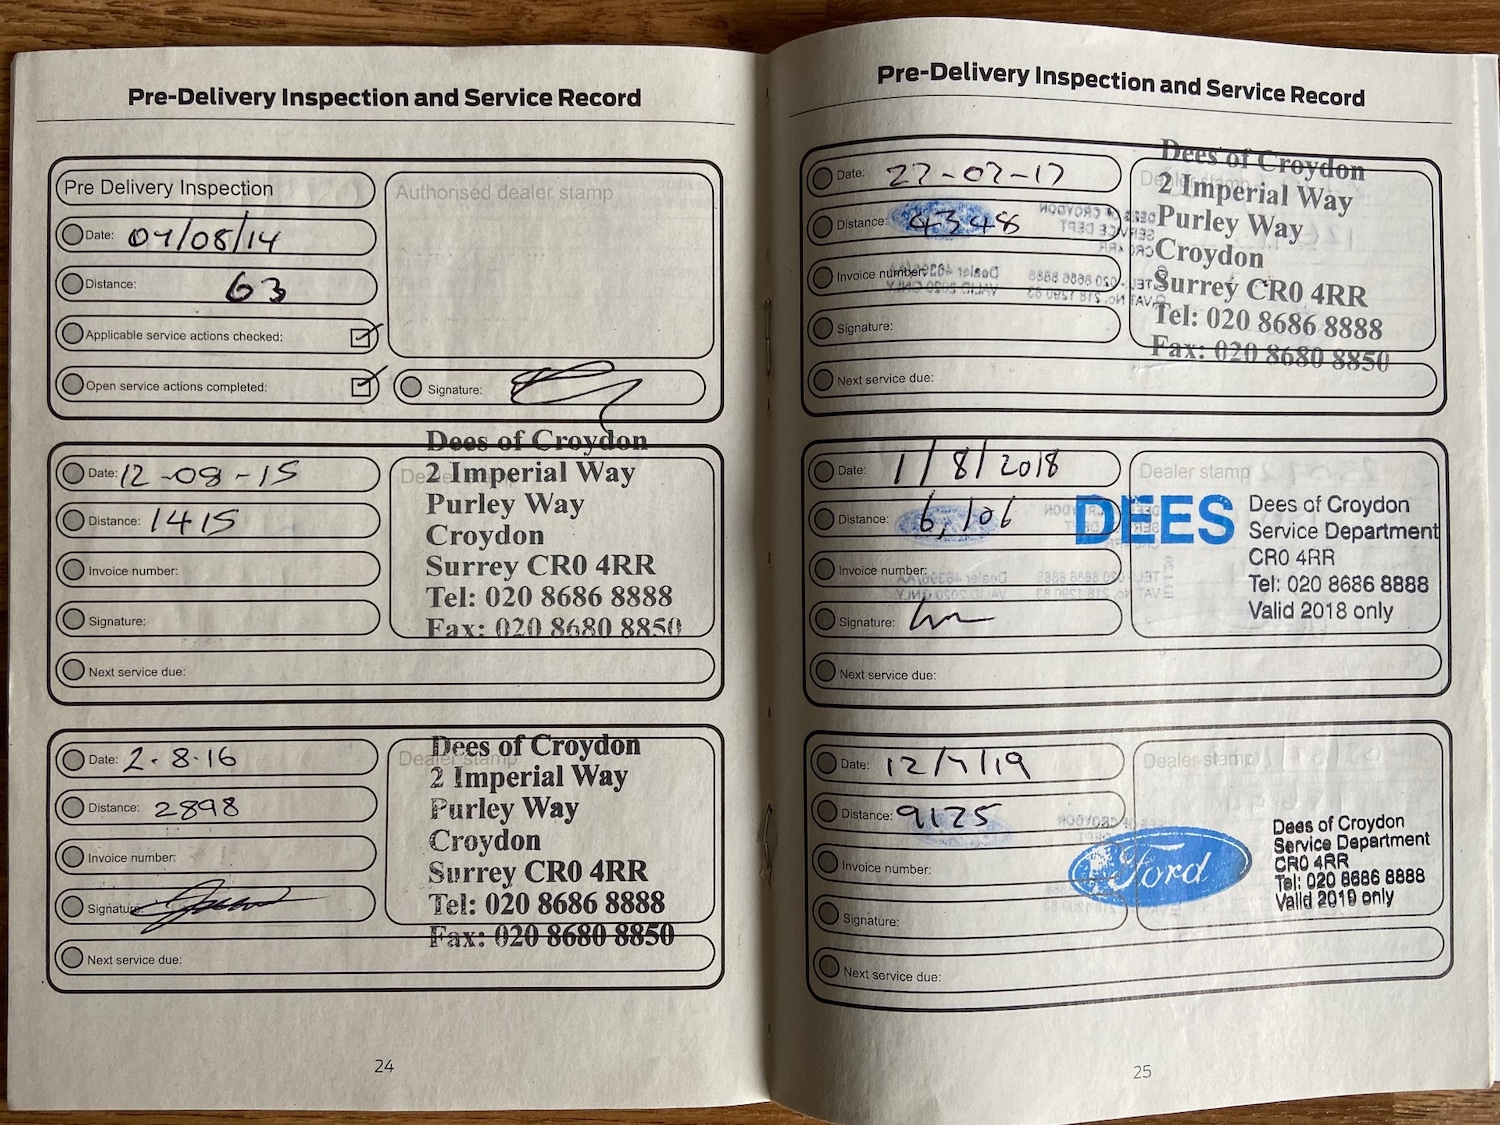 Pre-Delivery Inspection and Service Record
Pre Delivery Inspection
Authorised dealer stamp
Date: 07/08/14
Distance: 63
Applicable service actions checked:
Open service actions completed:
Signature:
Date: 12-08-15
Distance: 1415
Invoice number:
Signature:
Next service due:
Dealer stamp
Dees of Croydon
2 Imperial Way
Purley Way
Croydon
Surrey CR0 4RR
Tel: 020 8686 8888
Fax: 020 8680 8850
Date: 2.8.16
Distance: 2898
Invoice number:
Signature:
Next service due:
Dealer stamp
Dees of Croydon
2 Imperial Way
Purley Way
Croydon
Surrey CR0 4RR
Tel: 020 8686 8888
Fax: 020 8680 8850
24
Pre-Delivery Inspection and Service Record
Date: 27-07-17
Distance: 4348
Invoice number:
Signature:
Next service due:
Dealer stamp
Dees of Croydon
2 Imperial Way
Purley Way
Croydon
Surrey CR0 4RR
Tel: 020 8686 8888
Fax: 020 8680 8850
Date: 1/8/2018
Distance: 6,106
Invoice number:
Signature:
Next service due:
Dealer stamp
DEES
Dees of Croydon
Service Department
CR0 4RR
Tel: 020 8686 8888
Valid 2018 only
Date: 12/7/19
Distance: 9125
Invoice number:
Signature:
Next service due:
Dealer stamp
Ford
Dees of Croydon
Service Department
CR0 4RR
Tel: 020 8686 8888
Valid 2019 only
25